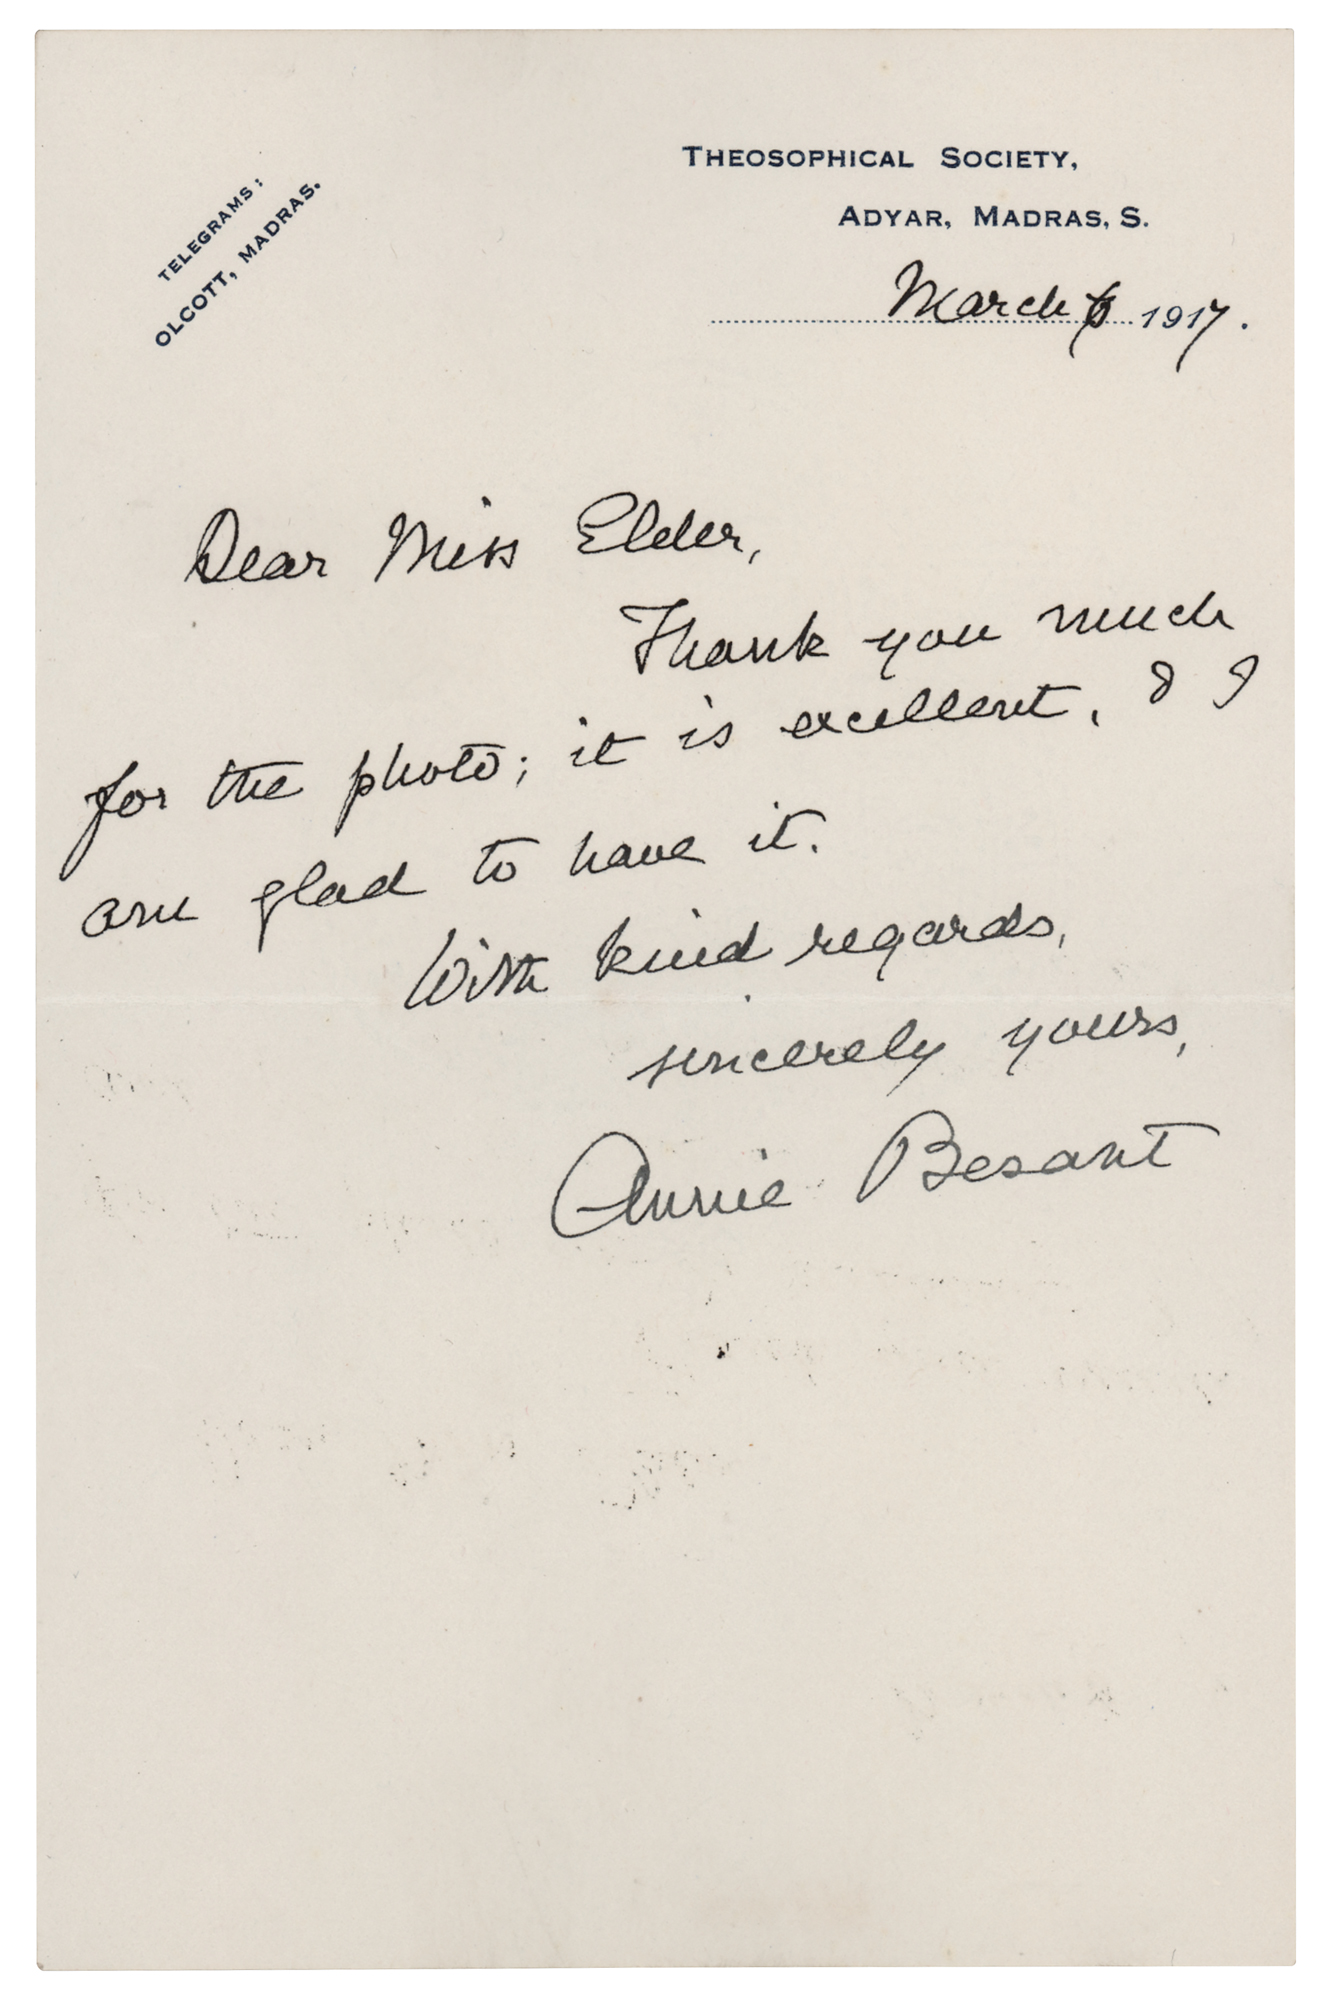 TELEGRAMS:
OLCOTT, MADRAS.
THEOSOPHICAL SOCIETY,
ADYAR, MADRAS, S.
March 1917.
Dear Miss Elder,
Thank you much
for the photo; it is excellent, & I
am glad to have it.
With kind regards,
sincerely yours,
Annie Besant